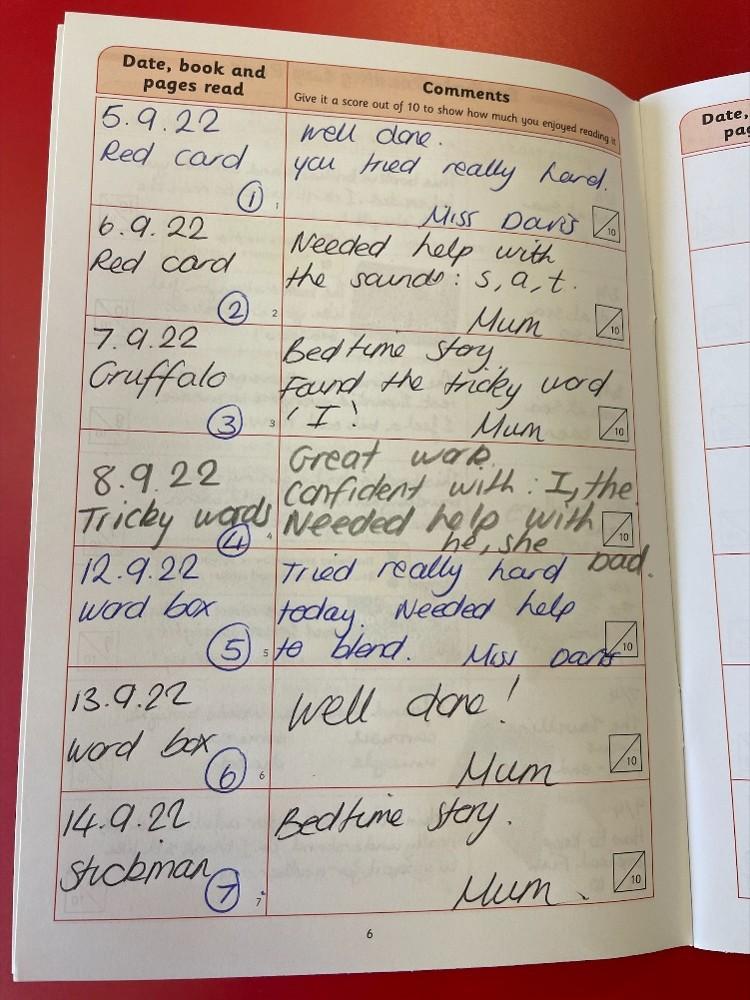 Date, book and
pages read
Comments
Give it a score out of 10 to show how much you enjoyed reading it
5.9.22
Red card
1
1
Well done.
you tried really hard.
Miss Davis
10
6.9.22
Red card
2
2
Needed help with
the sounds: s, a, t.
Mum
10
7.9.22
Gruffalo
3
3
Bedtime story
Found the tricky word
'I'!
Mum
10
8.9.22
Tricky words
4
4
Great work.
Confident with: I, the
Needed help with
he, she
10
12.9.22
word box
5
5
Tried really hard
today. Needed help
to blend.
Miss Davis
Dad.
10
13.9.22
word box
6
6
Well done!
Mum
10
14.9.22
Stickman
7
7
Bedtime story.
Mum
10
6
Date,